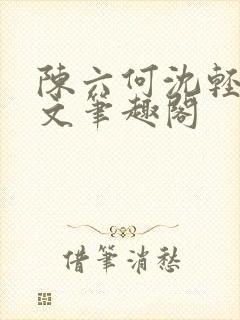 陳六何沈輕
文筆趣閣
借筆消愁